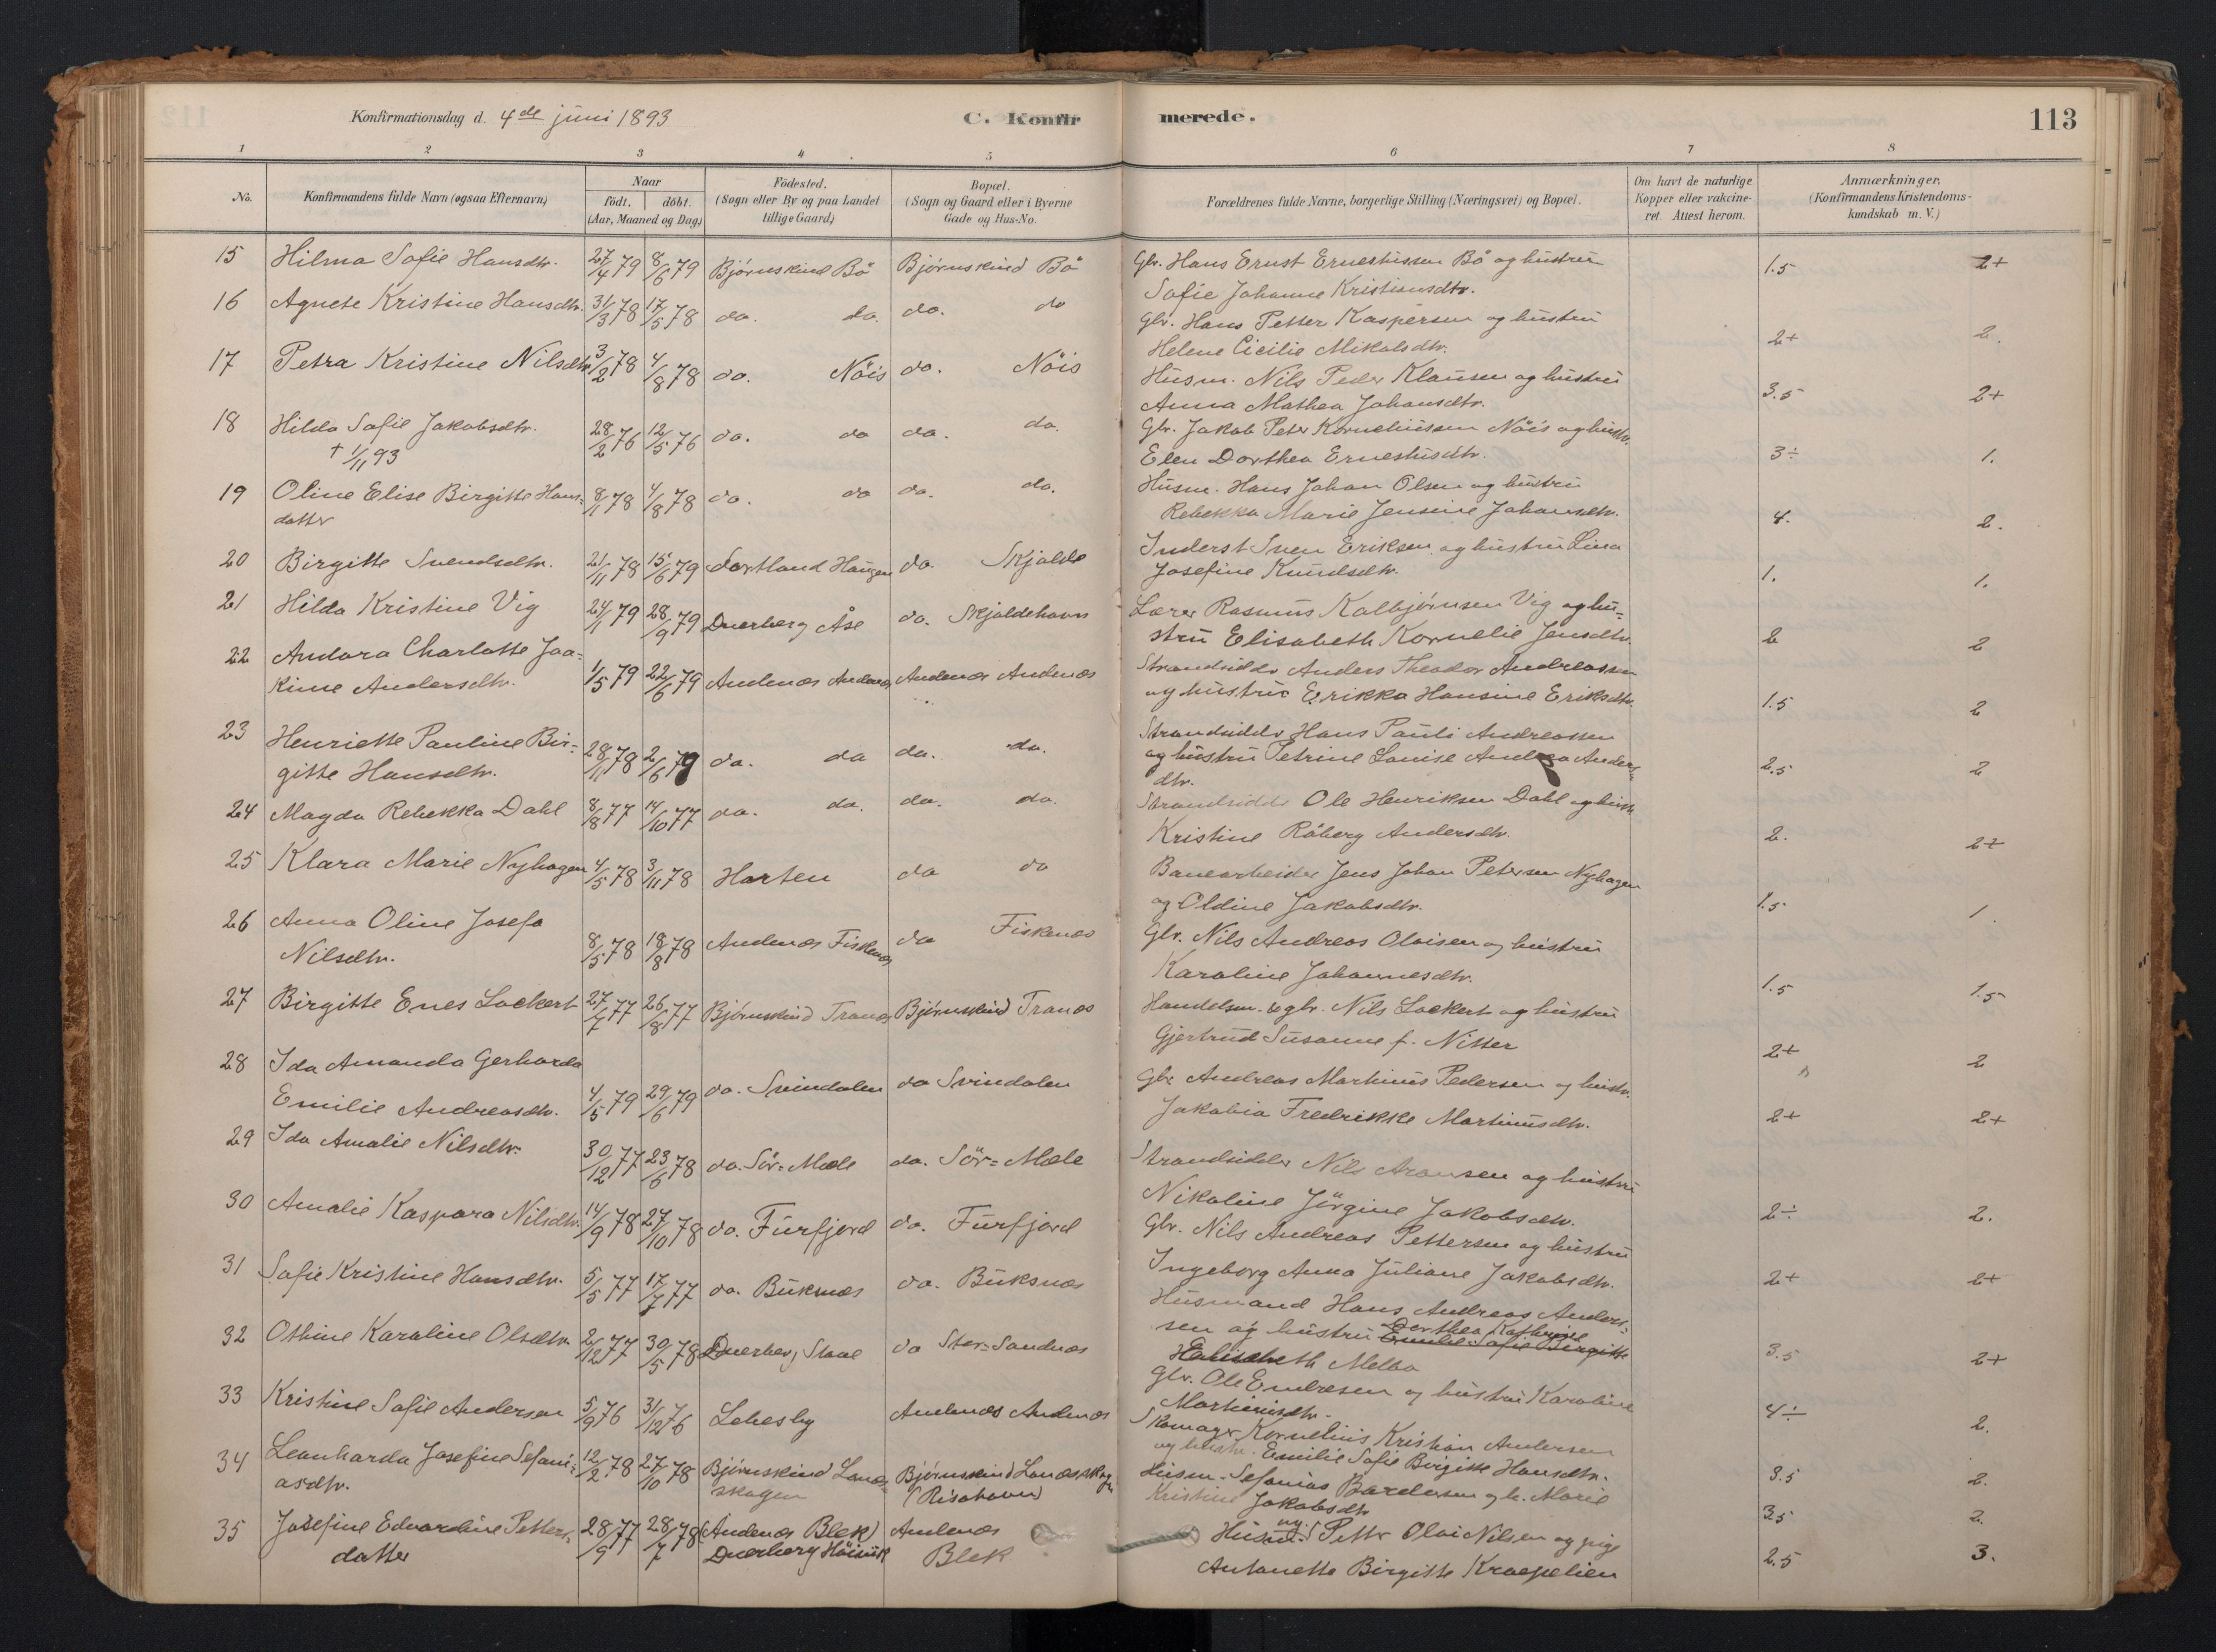 Konfirmationsdag d. 4de juni 1893
C. Konfirmerede.
113
1 2 3 4 5 6 7 8
No.
Konfirmandens fulde Navn (ogsaa Efternavn)
Naar
födt. döbt.
(Aar, Maaned og Dag)
Födested.
(Sogn eller By og paa Landet
tillige Gaard)
Bopæl.
(Sogn og Gaard eller i Byerne
Gade og Hus-No.
Forældrenes fulde Navne, borgerlige Stilling (Næringsvei) og Bopæl.
Om havt de naturlige
Kopper eller vakcine-
ret. Attest herom.
Anmærkninger,
(Konfirmandens Kristendoms-
kundskab m. V.)
15 Hilma Sofie Hansdtr. 27/4 79 8/6 79 Bjørnskind Bö Bjørnskind Bö Gbr. Hans Ernst Ernestussen Bö og hustru 1.5 2+
Sofie Johanne Kristiansdtr.
16 Agnete Kristine Hansdtr. 31/3 78 17/5 78 do. do. do. do Gbr. Hans Petter Kaspersen og hustru 2+ 2.
Helene Cicilie Mikalsdtr.
17 Petra Kristine Nilsdtr. 3/2 78 4/8 78 do. Nöis do. Nöis Husm. Nils Peder Klausen og hustru 3.5 2+
Anna Mathea Johansdtr.
18 Hilda Sofie Jakobsdtr. 28/2 76 12/5 76 do. do do. do. Gbr. Jakob Peter Korneliussen Nöis og hustr. 3÷ 1.
† 1/11 93
Elen Dorthea Ernestusdtr.
19 Oline Elise Birgitte Hans= 8/1 78 4/8 78 do. do do. do. Husm. Hans Johan Olsen og hustru 4. 2.
datter
Rebekka Marie Jensine Johansdtr.
20 Birgitte Svendsdtr. 21/11 78 15/6 79 Sortland Haugen do. Skjolde Inderst Sven Eriksen og hustru Lina 1. 1.
Josefine Knudsdtr.
21 Hilda Kristine Vig 24/1 79 28/9 79 Dverberg Åse do. Skjoldehavn Lærer Rasmus Kolbjørnsen Vig og hu= 2 2
stru Elisabeth Kornelie Jensdtr.
22 Andora Charlotte Joa= Strandsidder Anders Theodor Andreassen
kime Andersdtr. 1/5 79 22/6 79 Andenæs Andenæs Andenæs Andenæs og hustru Erikka Hansine Eriksdtr. 1.5 2
23 Henriette Pauline Bir= Strandsidder Hans Pauli Andreassen
gitte Hansdtr. 28/11 78 2/6 79 do. do do. do. og hustru Petrine Louise Andrea Anders= 2.5 2
dtr.
24 Magda Rebekka Dahl 8/8 77 14/10 77 do. do. do. do. Strandsidder Ole Henriksen Dahl og hustr. 2. 2+
Kristine Råberg Andersdtr.
25 Klara Marie Nyhagen 4/5 78 3/11 78 Horten do do Banearbeider Jens Johan Petersen Nyhagen 1.5 1.
og Oldine Jakobsdtr.
26 Anna Oline Josefa Fiskenæs
Nilsdtr. 8/5 78 18/8 78 Andenæs Fiskenæs do Gbr. Nils Andreas Olaisen og hustru 1.5 1.5
Karoline Johannesdtr.
27 Birgitte Enes Lockert 27/7 77 26/8 77 Bjørnskind Tranæs Bjørnskind Tranæs Handelsm. & gbr. Nils Lockert og hustru 2+ 2
Gjertrud Susanne f. Nitter
28 Ida Amanda Gerharda
Emilie Andreasdtr. 4/5 79 29/6 79 do. Svindalen do Svindalen Gbr Andreas Martinus Pedersen og hustr. 2+ 2+
Jakobia Fredrikke Martinusdtr.
29 Ida Amalie Nilsdtr. 30/12 77 23/6 78 do. Sör=Mæle do. Sör=Mæle Strandsidder Nils Aronsen og hustru 2÷ 2.
Nikoline Jörgine Jakobsdtr.
30 Amalie Kaspara Nilsdtr. 14/9 78 27/10 78 do. Furfjord do. Furfjord Gbr. Nils Andreas Pettersen og hustru 2+ 2+
Ingeborg Anna Juliane Jakobsdtr.
31 Sofie Kristine Hansdtr. 5/5 77 17/7 77 do. Buksnæs do. Buksnæs Husmand Hans Andreas Anders= 3.5 2+
Dorthea Kathrine
sen og hustru Emilie Sofie Birgitte
Elisabeth Melbo
32 Othine Karoline Olsdtr. 2/12 77 30/5 78 Dverberg Stave do Stor=Sandnæs Gbr. Ole Endresen og hustru Karoline 4÷ 2.
Martinusdtr.
33 Kristine Sofie Andersen 5/9 76 31/12 76 Lebesby Andenæs Andenæs Skomager Kornelius Kristian Andersen 3.5 2.
og hustr. Emilie Sofie Birgitte Hansdtr.
34 Leonharda Josefine Sefani= 12/2 78 27/10 78 Bjørnskind Lanæs= Bjørnskind Lanæsskogen Husm. Sefanias Bardosen og h. Marie 3.5 2.
asdtr. skogen (Risøhavn) Kristine Jakobsdtr
35 Josefine Edvardine Petters= 28/9 77 28/7 78 (Andenæs Blek) Andenæs Husm. Petter Olai Nilsen og pige 2.5 3.
datter Dverberg Höisuk Blek Antonette Birgitte Kraepelien